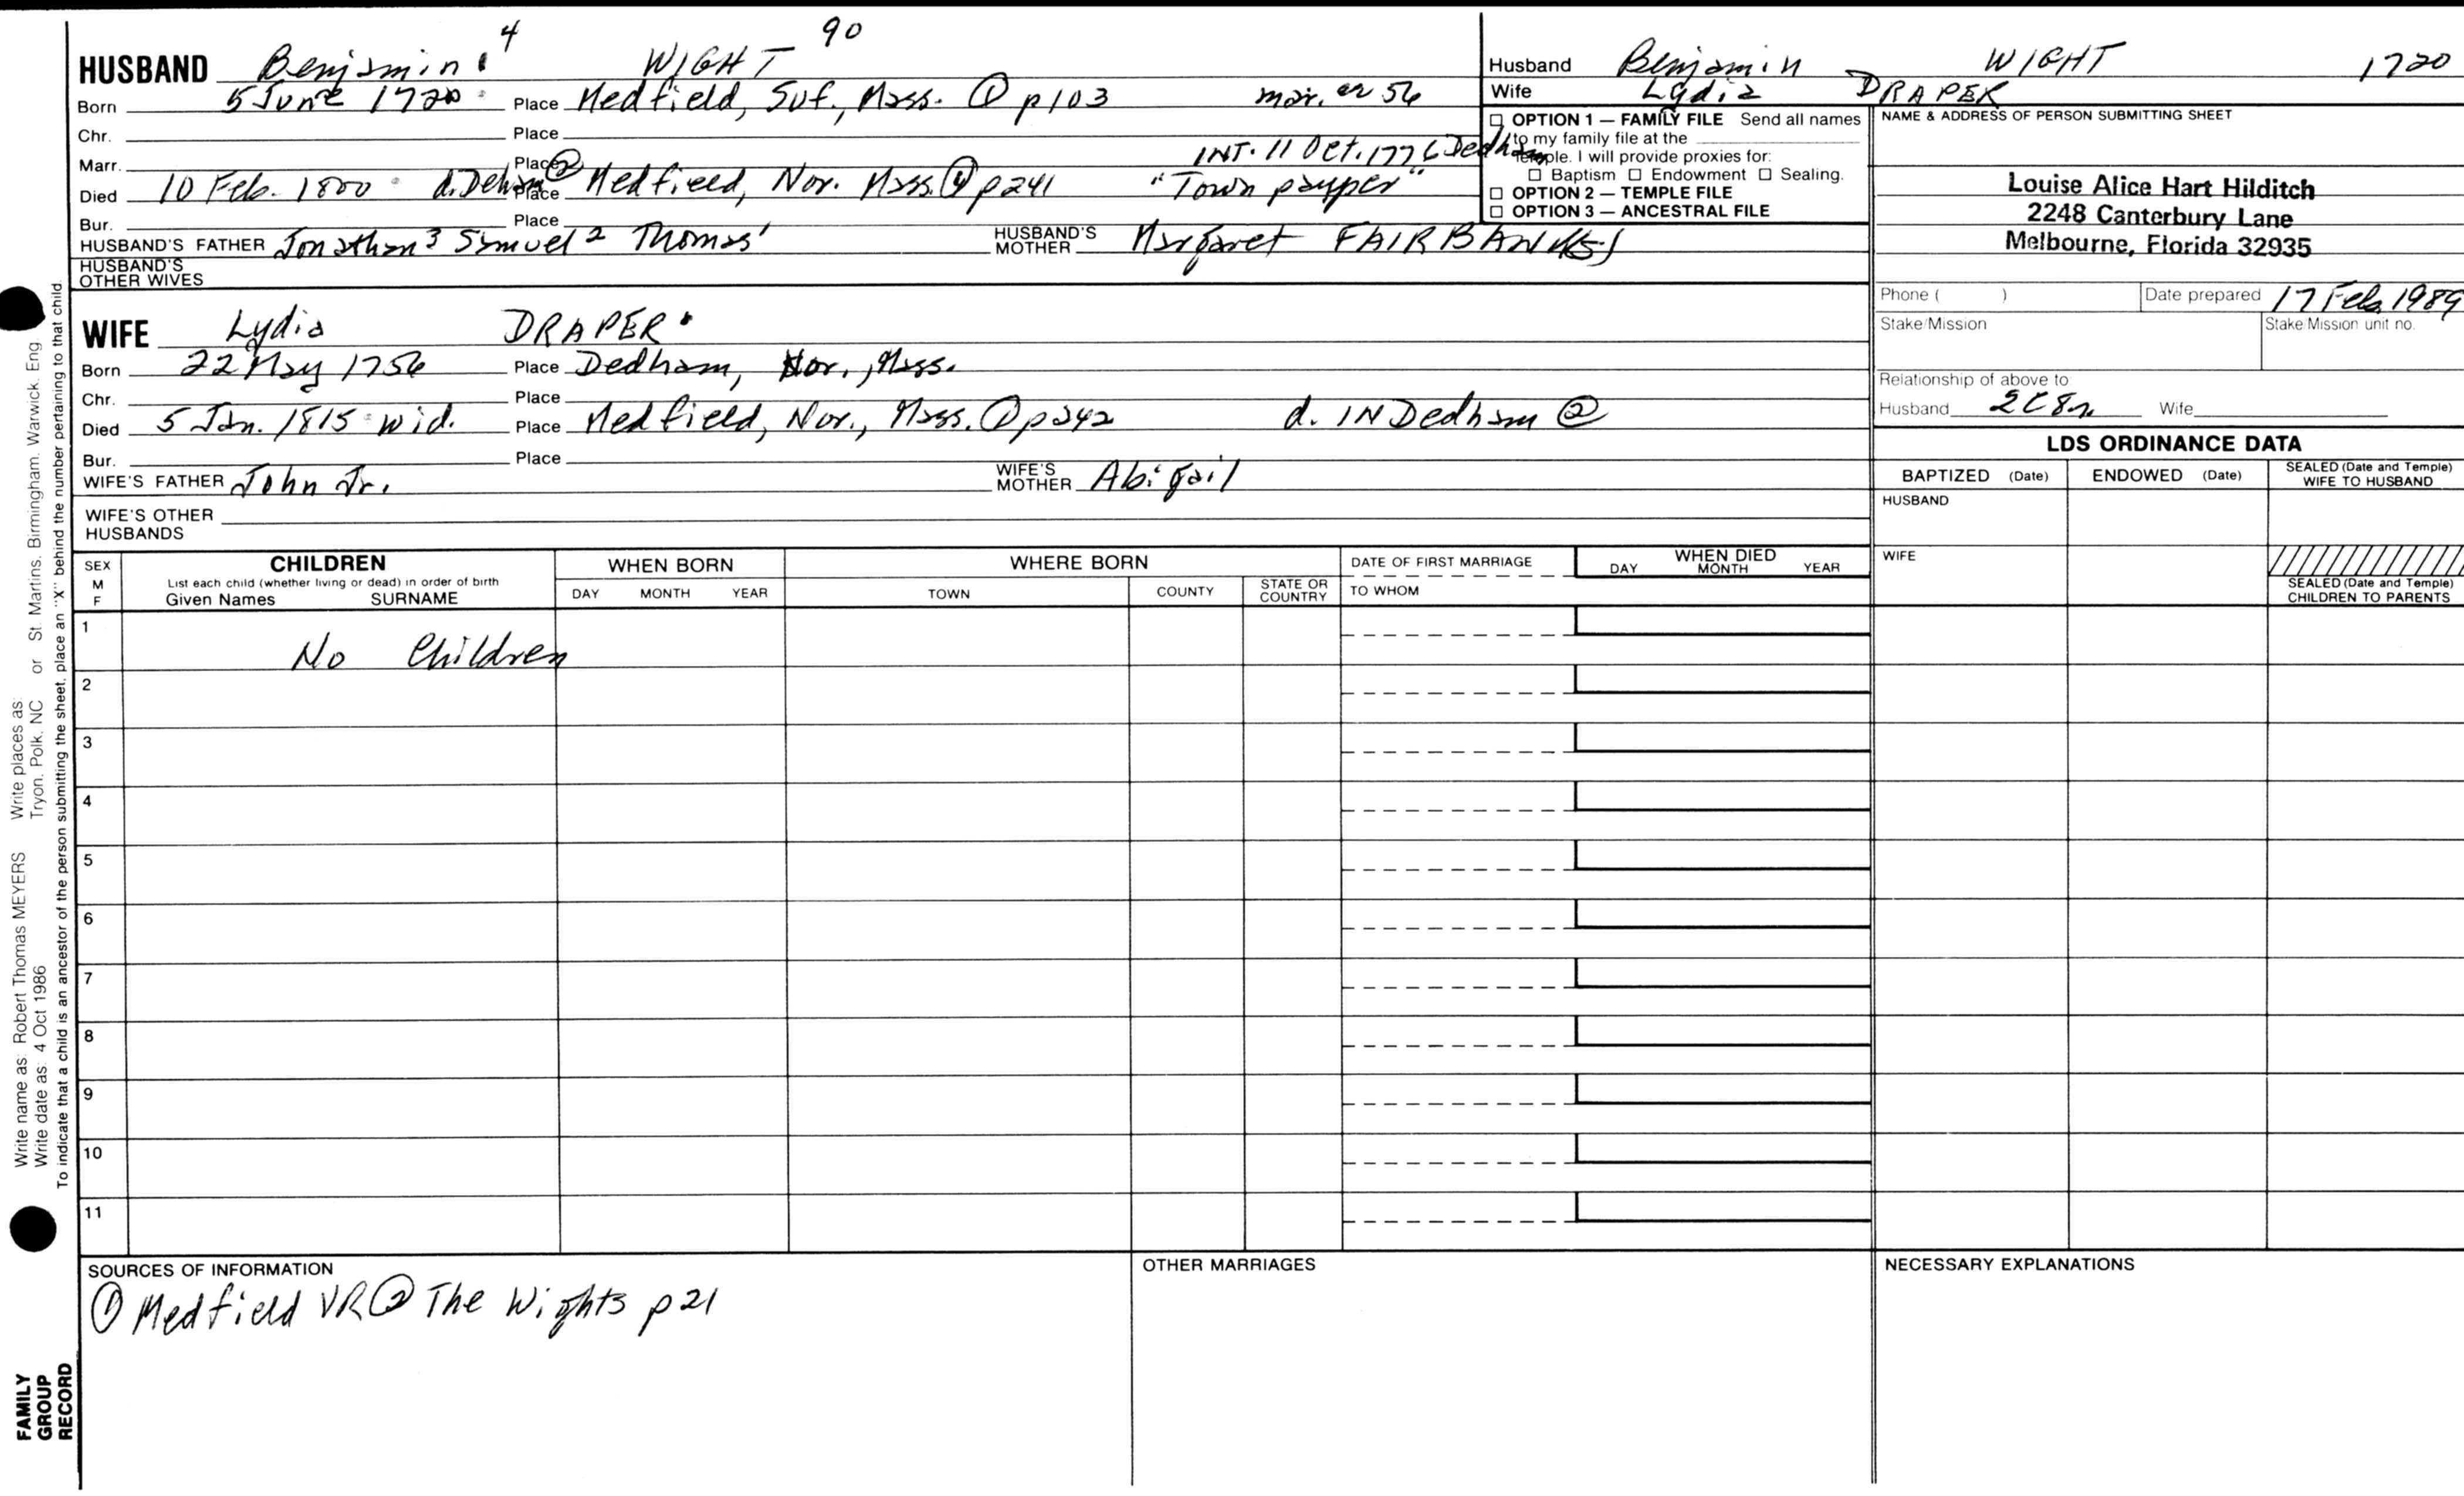 HUSBAND Benjamin 4 WIGHT 90
Born 5 June 1720 Place Medfield, Suf., Mass. ① p103 mar. at 56
Chr. Place
Marr. Place INT. 11 Oct. 1776 Dedham
Died 10 Feb. 1800 d. Dedham ② Place Medfield, Nor. Mass. ① p241 "Town pauper"
Bur. Place
HUSBAND'S FATHER Jonathan 3 Samuel 2 Thomas 1 HUSBAND'S MOTHER Margaret FAIRBANK(S)
HUSBAND'S OTHER WIVES
WIFE Lydia DRAPER
Born 22 May 1756 Place Dedham, Nor., Mass.
Chr. Place
Died 5 Jan. 1815 wid. Place Medfield, Nor., Mass. ① p242 d. IN Dedham ②
Bur. Place
WIFE'S FATHER John Jr. WIFE'S MOTHER Abigail
WIFE'S OTHER HUSBANDS
Husband Benjamin WIGHT 1720
Wife Lydia DRAPER
☐ OPTION 1 — FAMILY FILE Send all names
to my family file at the
temple. I will provide proxies for:
☐ Baptism ☐ Endowment ☐ Sealing.
☐ OPTION 2 — TEMPLE FILE
☐ OPTION 3 — ANCESTRAL FILE
NAME & ADDRESS OF PERSON SUBMITTING SHEET
Louise Alice Hart Hilditch
2248 Canterbury Lane
Melbourne, Florida 32935
Phone ( ) Date prepared 17 Feb. 1989
Stake/Mission Stake/Mission unit no.
Relationship of above to
Husband 2C8r Wife
LDS ORDINANCE DATA
BAPTIZED (Date) ENDOWED (Date) SEALED (Date and Temple) WIFE TO HUSBAND
HUSBAND
WIFE
SEALED (Date and Temple) CHILDREN TO PARENTS
SEX M F
CHILDREN
List each child (whether living or dead) in order of birth
Given Names SURNAME
WHEN BORN
DAY MONTH YEAR
WHERE BORN
TOWN COUNTY STATE OR COUNTRY
DATE OF FIRST MARRIAGE
TO WHOM
WHEN DIED
DAY MONTH YEAR
1 No Children
2
3
4
5
6
7
8
9
10
11
SOURCES OF INFORMATION
① Medfield VR ② The Wights p21
OTHER MARRIAGES
NECESSARY EXPLANATIONS
Write name as: Robert Thomas MEYERS Write places as:
Write date as: 4 Oct 1986 Tryon, Polk, NC or St. Martins, Birmingham, Warwick, Eng
To indicate that a child is an ancestor of the person submitting the sheet, place an "X" behind the number pertaining to that child.
FAMILY
GROUP
RECORD